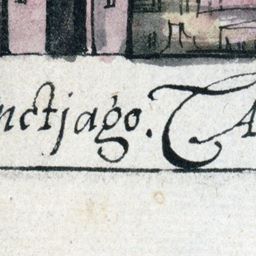 nctjago. TA